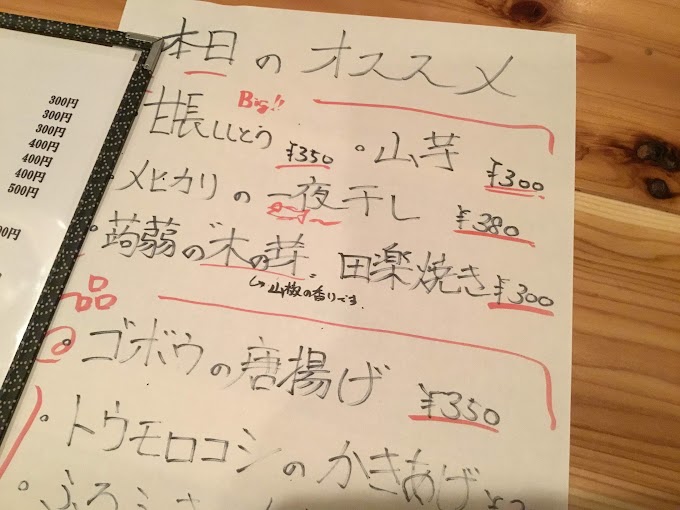 300円
300円
300円
400円
400円
400円
500円
00円
本日のオススメ
Big!!
甘長ししとう ¥350
・山芋 ¥300
・メヒカリの一夜干し ¥380
・蒟蒻の"木の芽"田楽焼き ¥300
山椒の香りです
一品
ゴボウの唐揚げ ¥350
・トウモロコシのかきあげ